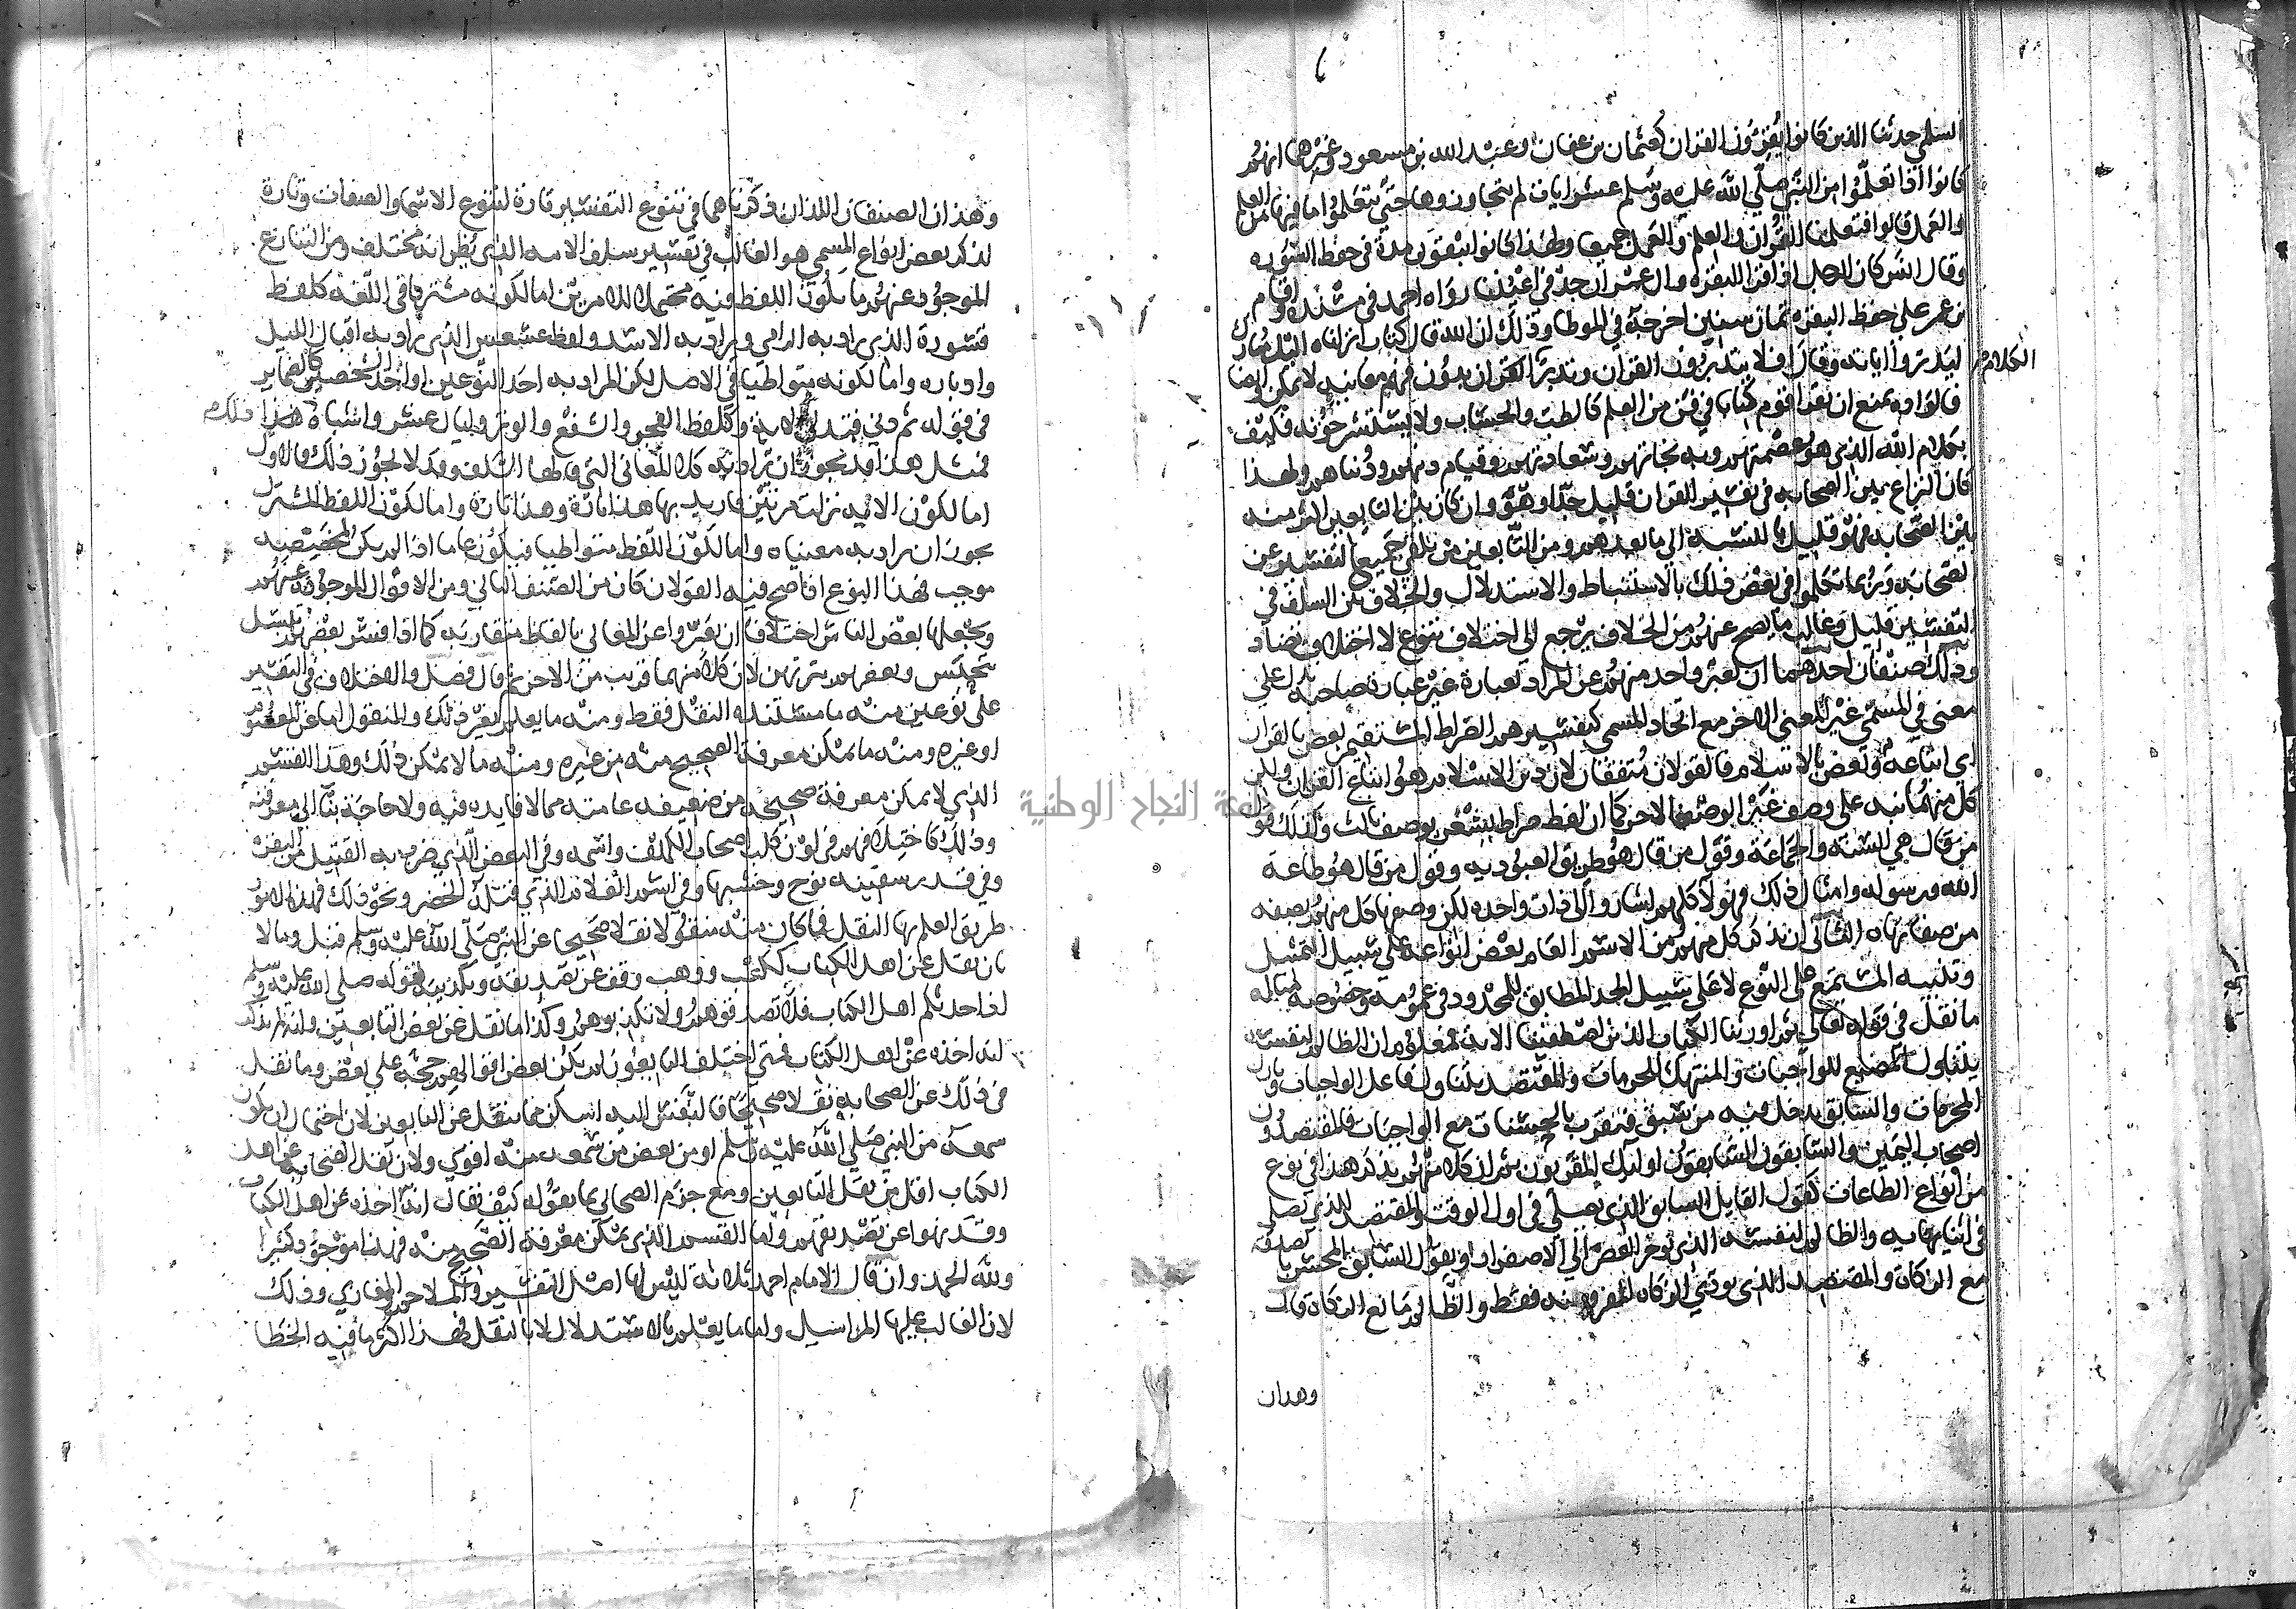 السلمي حدثنا الذين كانوا يقرئون القران كعثمان بن عفان وعبد الله بن مسعود وغيرهما انهم
كانوا اذا تعلموا من النبي صلي الله عليه وسلم عشر ايات لم يتجاوزوها حتي يتعلموا ما فيها من العلم
والعمل قالوا فتعلمنا القران والعلم والعمل جميعا ولهذا كانوا يبقون مدة في حفظ السوره
وقال انس كان الرجل اذا قرا البقره وال عمران جد في اعيننا رواه احمد في مسنده واقام
بن عمر علي حفظ البقره ثمان سنين اخرجه في الموطا وذلك ان الله قال كتاب انزلناه اليك مبارك
ليدبروا اياته وقال افلا يتدبرون القران وتدبر الكلام بدون فهم معانيه لا يمكن وايضا
الكلام
فالعاده تمنع ان يقرا قوم كتابا في فن من العلم كالطب والحساب ولا يستشرحونه فكيف
بكلام الله الذي هو عصمتهم وبه نجاتهم وسعادتهم وقيام دينهم ودنياهم ولهذا
كان النزاع بين الصحابه في تفسير القران قليل جدا وهو وان كان بين التابعين اكثر منه
بين الصحابه فهو قليل بالنسبه الي ما بعدهم ومن التابعين من تلقي جميع التفسير عن
الصحابه وربما تكلموا في بعض ذلك بالاستنباط والاستدلال والخلاف بين السلف في
التفسير قليل وغالب ما يصح عنهم من الخلاف يرجع الي اختلاف تنوع لا اختلاف تضاد
وذلك صنفان احدهما ان يعبر واحد منهم عن المراد بعبارة غير عبارة صاحبه تدل علي
معني في المسمي غير المعني الاخر مع اتحاد المسمي كتفسيرهم الصراط المستقيم بعض بالقران
اي اتباعه وبعض بالاسلام فالقولان متفقان لان دين الاسلام هو اتباع القران ولكن
كل منهما نبه علي وصف غير الوصف الاخر كما ان لفظ صراط يشعر بوصف ثالث وكذلك قول
من قال هي السنه والجماعة وقول من قال هو طريق العبوديه وقول من قال هو طاعة
الله ورسوله وامثال ذلك فهولا كلهم اشاروا الي ذات واحده لكن وصفها كل منهم بصفه
من صفاتها الثاني ان يذكر كل منهم من الاسم العام بعض انواعه علي سبيل التمثيل
وتنبيه المستمع علي النوع لا علي سبيل الحد المطابق للمحدود في عمومه وخصوصه مثاله
ما نقل في قوله تعالي ثم اورثنا الكتاب الذين اصطفينا الاية فمعلوم ان الظالم لنفسه
يتناول المضيع للواجبات والمنتهك للمحرمات والمقتصد يتناول فاعل الواجبات وتارك
المحرمات والسابق يدخل فيه من سبق فتقرب بالحسنات مع الواجبات فالمقتصدون
اصحاب اليمين والسابقون السابقون اوليك المقربون ثم ان كلا منهم يذكر هذا في نوع
من انواع الطاعات كقول القايل السابق الذي يصلي في اول الوقت والمقتصد الذي يصلي
في اثنايه والظالم لنفسه الذي يوخر العصر الي الاصفرار او يقول السابق المحسن بالصدقه
مع الزكاة والمقتصد الذي يودي الزكاه المفروضه فقط والظالم مانع الزكاة قال
وهذان
وهذان الصنفان اللذان ذكرناهما في تنوع التفسير تارة لتنوع الاسما والصفات وتارة
لذكر بعض انواع المسمي هو الغالب في تفسير سلف الامه الذي يظن انه مختلف ومن التنازع
الموجود عنهم ما يكون اللفظ فيه محتملا للامرين اما لكونه مشتركا في اللغه كلفظ
قسورة الذي يراد به الرامي ويراد به الاسد ولفظ عسعس الذي يراد به اقبال الليل
وادباره واما لكونه متواطيا في الاصل لكن المراد به احد النوعين او احد الشخصين كالضماير
في قوله ثم دني فتدلي الاية وكلفظ الفجر والشفع والوتر وليال عشر واشباه ذلك
فمثل هذا قد يجوز ان يراد به كل المعاني التي قالها السلف وقد لا يجوز ذلك فالاول
اما لكون الايه نزلت مرتين فاريد بها هذا تارة وهذا تارة واما لكون اللفظ المشترك
يجوز ان يراد به معنياه واما لكون اللفظ متواطيا فيكون عاما اذا لم يكن لتخصيصه
موجب فهذا النوع اذا صح فيه القولان كان من الصنف الثاني ومن الاقوال الموجوده عنهم
ويجعلها بعض الناس اختلافا ان يعبروا عن المعاني بالفاظ متقاربه كما اذا فسر بعضهم تبسل
بتحبس وبعضهم بترتهن لان كلا منهما قريب من الاخر ثم قال فصل والاختلاف في التفسير
علي نوعين منه ما مستنده النقل فقط ومنه ما يعلم بغير ذلك والمنقول اما عن المعصوم
او غيره ومنه ما يمكن معرفة الصحيح منه من غيره ومنه ما لا يمكن ذلك وهذا القسم
الذي لا يمكن معرفة صحيحه من ضعيفه عامته مما لا فايده فيه ولا حاجة بنا الي معرفته
وذلك كاختلافهم في لون كلب اصحاب الكهف واسمه وفي البعض الذي ضرب به القتيل من البقره
وفي قدر سفينه نوح وخشبها وفي اسم الغلام الذي قتله الخضر ونحو ذلك فهذه الامور
طريق العلم بها النقل فما كان منه منقولا نقلا صحيحا عن النبي صلي الله عليه وسلم قبل ومالا
بان نقل عن اهل الكتاب ككعب ووهب وقف عن تصديقه وتكذيبه لقوله صلي الله عليه وسلم
اذا حدثكم اهل الكتاب فلا تصدقوهم ولا تكذبوهم وكذا ما نقل عن بعض التابعين وان لم يذكر
انه اخذه عن اهل الكتاب فمتي اختلف التابعون لم يكن بعض اقوالهم حجة علي بعض وما نقل
في ذلك عن الصحابه نقلا صحيحا فالنفس اليه اسكن مما ينقل عن التابعين لان احتمال ان يكون
سمعه من النبي صلي الله عليه وسلم او من بعض من سمعه منه اقوي ولان نقل الصحابه عن اهل
الكتاب اقل من نقل التابعين ومع جزم الصحابي بما يقوله كيف يقال انه اخذه عن اهل الكتاب
وقد نهوا عن تصديقهم واما القسم الذي يمكن معرفة الصحيح منه فهذا موجود كثيرا
ولله الحمد وان قال الامام احمد ثلاثة ليس لها اصل التفسير والملاحم والمغازي وذلك
لان الغالب عليها المراسيل واما ما يعلم بالاستدلال لا بالنقل فهذا اكثر ما فيه الخطا
جامعة النجاح الوطنية